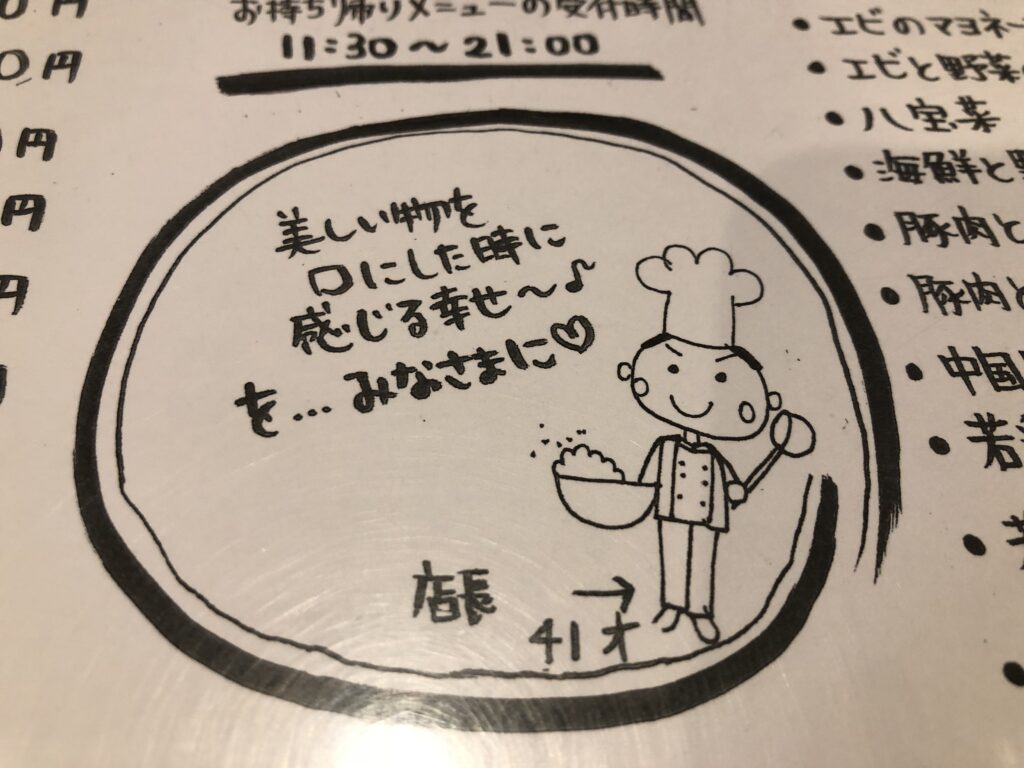 円
0円
お持ち帰りメニューの受付時間
11:30～21:00
円
円
円
美しい物を
口にした時に
感じる幸せ～♪
を…みなさまに♡
店長 →
41才
・エビのマヨネー
・エビと野菜
・八宝菜
・海鮮と
・豚肉と
・豚肉と
・中国
・若